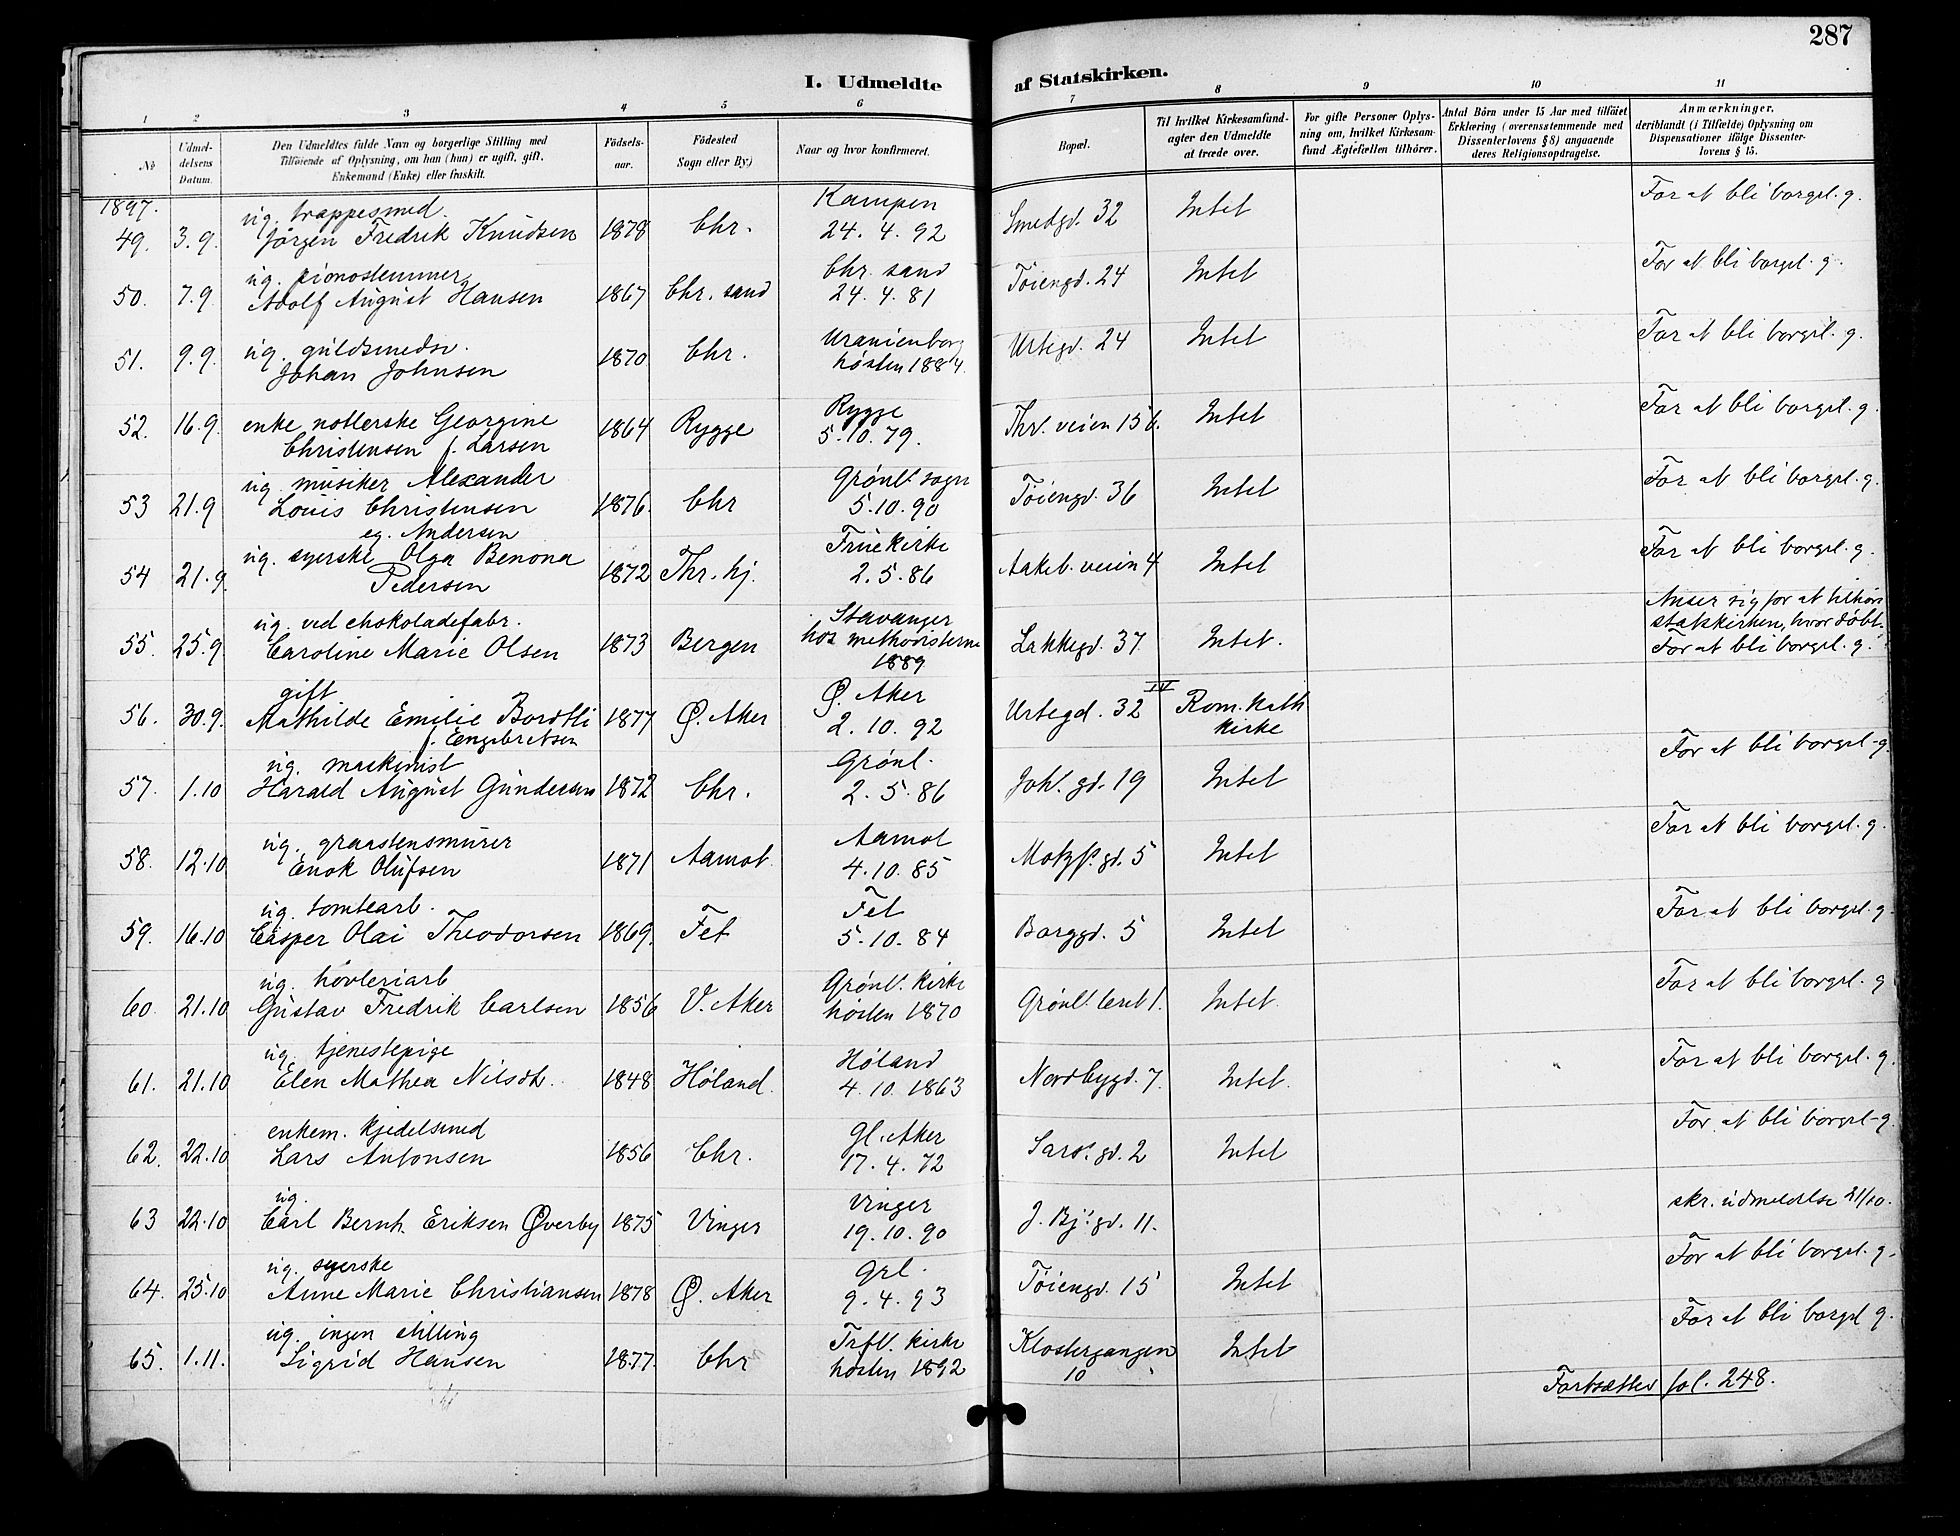 287
I. Udmeldte af Statskirken.
1 2 3 4 5 6 7 8 9 10 11
No
Udmel-
delsens
Datum.
Den Udmeldtes fulde Navn og borgerlige Stilling med
Tilföiende af Oplysning, om han (hun) er ugift, gift,
Enkemand (Enke) eller fraskilt.
Födsels-
aar.
Födested
Sogn eller By)
Naar og hvor konfirmeret.
Bopæl.
Til hvilket Kirkesamfund-
agter den Udmeldte
at træde over.
For gifte Personer Oplys-
ning om, hvilket Kirkesam-
fund Ægtefællen tilhörer.
Antal Börn under 15 Aar med tilföiet
Erklæring (overensstemmende med
Dissenterlovens § 8) angaaende
deres Religionsopdragelse.
Anmærkninger,
deriblandt (i Tilfælde) Oplysning om
Dispensationer ifölge Dissenter-
lovens § 15.
1897.
ug. trappesmed. Kampen For at bli borgel. g.
49. 3.9. Jørgen Fredrik Knudsen 1878 Chr. 24.4.92 Smedgd. 32 Intet
ug. pianostemmer Chr. sand For at bli borgel. g.
50. 7.9. Adolf August Hansen 1867 Chr. sand 24.4.81 Töiengd. 24 Intet
ug. guldsmedsv. Uranienborg For at bli borgel. g.
51. 9.9. Johan Johnsen 1870 Chr. høsten 1884. Urtegd. 24 Intet
52. 16.9. enke notterske Georgine 1864 Rygge Rygge Thv. veien 15 b. Intet For at bli borgel. g.
Christensen f. Larsen 5.10.79.
ug. musiker Alexander Grønl. sogn For at bli borgel. g.
53 21.9 Louis Christensen 1876. Chr 5.10.90 Töiengd. 36 Intet
eg. Andersen
ug. syerske Olga Benona Fruekirke For at bli borgel. g.
54 21.9. Pedersen 1872 Thr.hj. 2.5.86 Aakeb. veien 4 Intet
ug. ved chokoladefabr. Stavanger Anser sig for at tilhøre
55. 25.9 Caroline Marie Olsen 1873 Bergen hos methodisterne Lakkegd. 37 Intet. statskirken, hvor döbt.
1889 For at bli borgel. g.
gift Ø. Aker IV
56. 30.9. Mathilde Emilie Bordtli 1877 Ø. Aker 2.10.92 Urtegd. 32 Rom. Kath
f. Engebretsen kirke
ug. maskinist Grønl. For at bli borgel. g.
57. 1.10 Harald August Gundersen 1872 Chr. 2.5.86 Joh. gd. 19 Intet
ug. graastensmurer Aamot For at bli borgel. g.
58. 12.10 Enok Olufsen 1871 Aamot. 4.10.85 Motzf. gd. 5 Intet
ug. tomtearb. Fet For at bli borgel. g.
59. 16.10 Casper Olai Theodorsen 1869. Fet 5.10.84 Borggd. 5 Intet
ug. høvleriarb Grønl. kirke For at bli borgel. g
60. 21.10 Gustav Fredrik Carlsen 1856 V. Aker høsten 1870 Grønl. leret 1. Intet.
ug. tjenestepige Høland For at bli borgel. g.
61. 21.10 Elen Mathea Nilsdt. 1848 Høland. 4.10.1863 Nordbygd. 7. Intet.
enkem. kjedelsmed Gl. Aker For at bli borgel. g.
62. 22.10 Lars Antonsen 1856 Chr. 17.4.72 Sars. gd. 2 Intet
ug. Vinger skr. udmeldelse 21/10.
63 22.10 Carl Bernh. Eriksen Øverby 1875 Vinger 19.10.90 J. Bj. gd. 11.
ug. syerske Grl. For at bli borgel. g.
64. 25.10 Anne Marie Christiansen 1878 Ø. Aker 9.4.93 Töiengd. 15 Intet
ug. ingen stilling Trefl. kirke For at bli borgel g.
65. 1.11. Sigrid Hansen 1877. Chr høsten 1892 Klostergangen Intet
10
Fortsættes fol. 248.